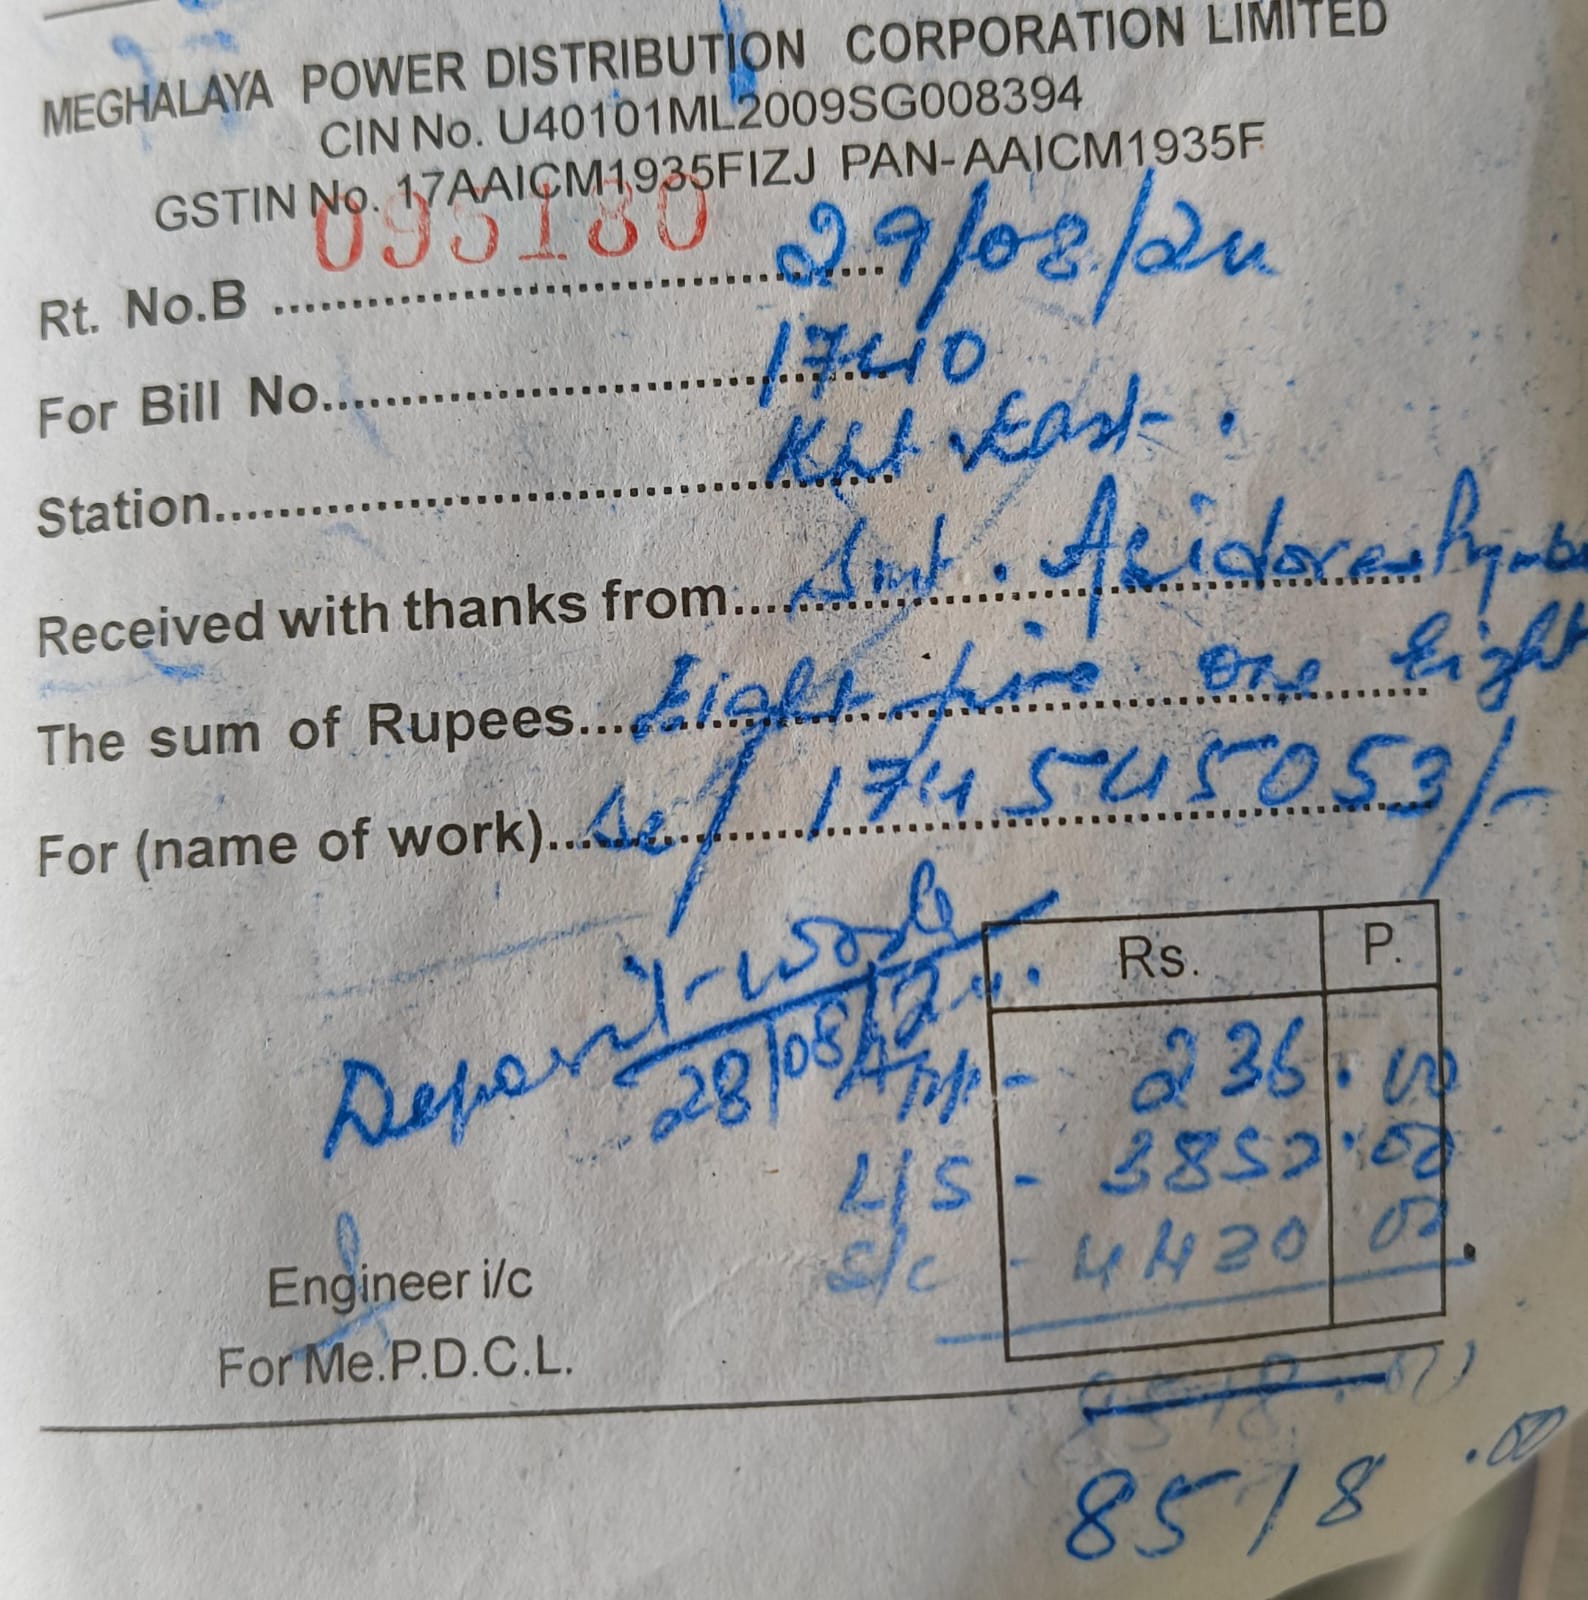 MEGHALAYA POWER DISTRIBUTION CORPORATION LIMITED
CIN No. U40101ML2009SG008394
GSTIN No. 17AAICM1935FIZJ PAN-AAICM1935F
095180
Rt. No.B .................... 29/08/24
For Bill No.................... 1740
Station.................... East.
Received with thanks from.......... Smt.
The sum of Rupees.......... Eight five one Eight
For (name of work).......... 174545053/-
work
28/08/24.
Rs. P.
- 236.00
L/S - 3852.00
S/C - 4430 00
Engineer i/c
For Me.P.D.C.L.
8518.00